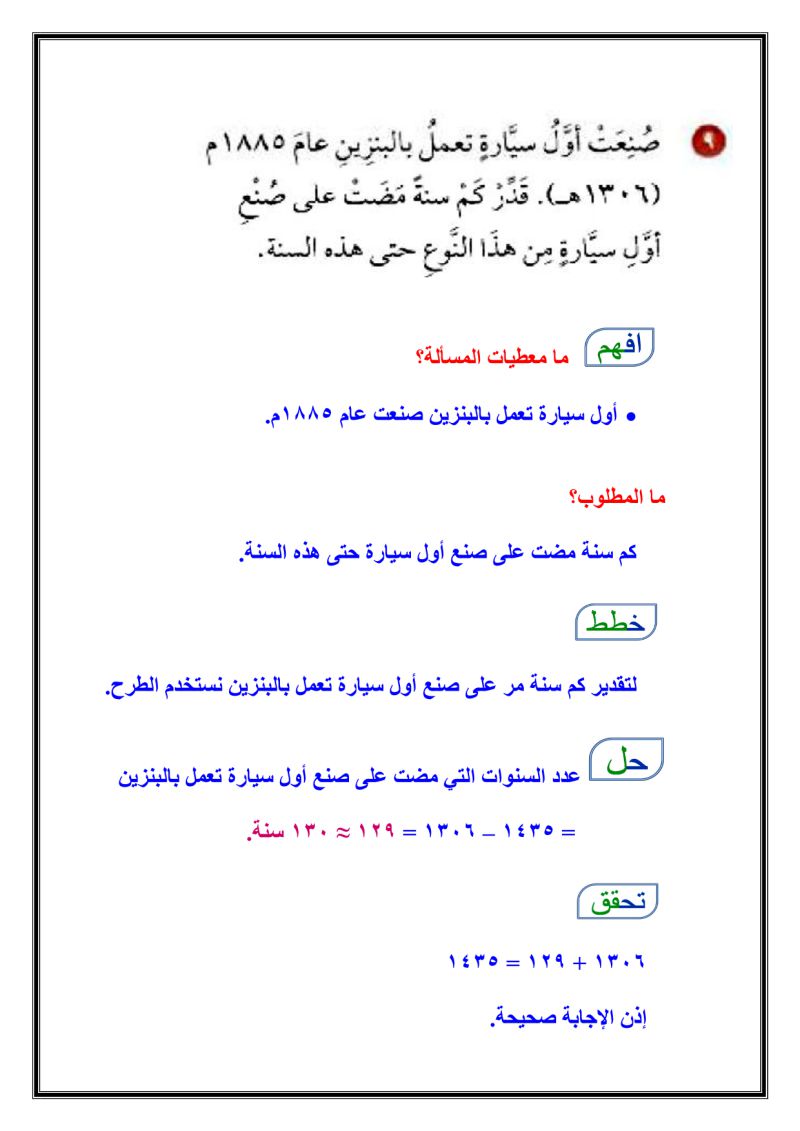 ٩ صُنِعَتْ أوَّلُ سيَّارةٍ تعملُ بالبنزِينِ عامَ ١٨٨٥م
(١٣٠٦هـ). قَدِّرْ كَمْ سنةً مَضَتْ على صُنْعِ
أوَّلِ سيَّارةٍ مِن هذَا النَّوعِ حتى هذه السنة.
افهم ما معطيات المسألة؟
• أول سيارة تعمل بالبنزين صنعت عام ١٨٨٥م.
ما المطلوب؟
كم سنة مضت على صنع أول سيارة حتى هذه السنة.
خطط
لتقدير كم سنة مر على صنع أول سيارة تعمل بالبنزين نستخدم الطرح.
حل عدد السنوات التي مضت على صنع أول سيارة تعمل بالبنزين
= ١٤٣٥ – ١٣٠٦ = ١٢٩ ≈ ١٣٠ سنة.
تحقق
١٣٠٦ + ١٢٩ = ١٤٣٥
إذن الإجابة صحيحة.